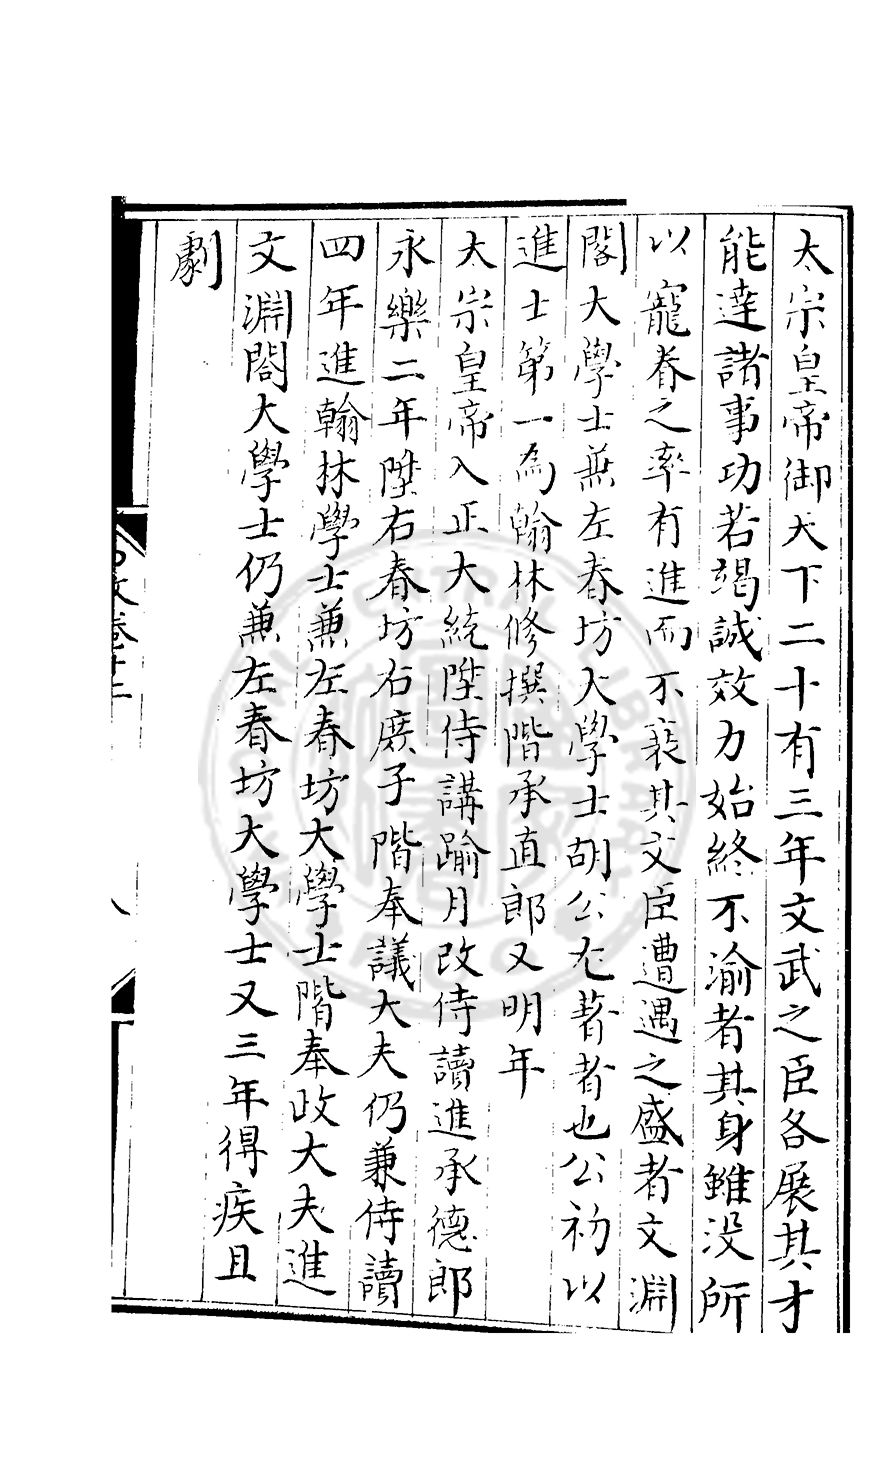 太宗皇帝御天下二十有三年文武之臣各展其才
能達諸事功若竭誠效力始終不渝者其身雖没所
以寵眷之率有進而不衰其文臣遭遇之盛者文淵
閣大學士兼左春坊大學士胡公尤著者也公初以
進士第一為翰林修撰階承直郎又明年
太宗皇帝入正大統陞侍講踰月改侍讀進承德郎
永樂二年陞右春坊右庶子階奉議大夫仍兼侍讀
四年進翰林學士兼左春坊大學士階奉政大夫進
文淵閣大學士仍兼左春坊大學士又三年得疾且
劇
文卷十二
八